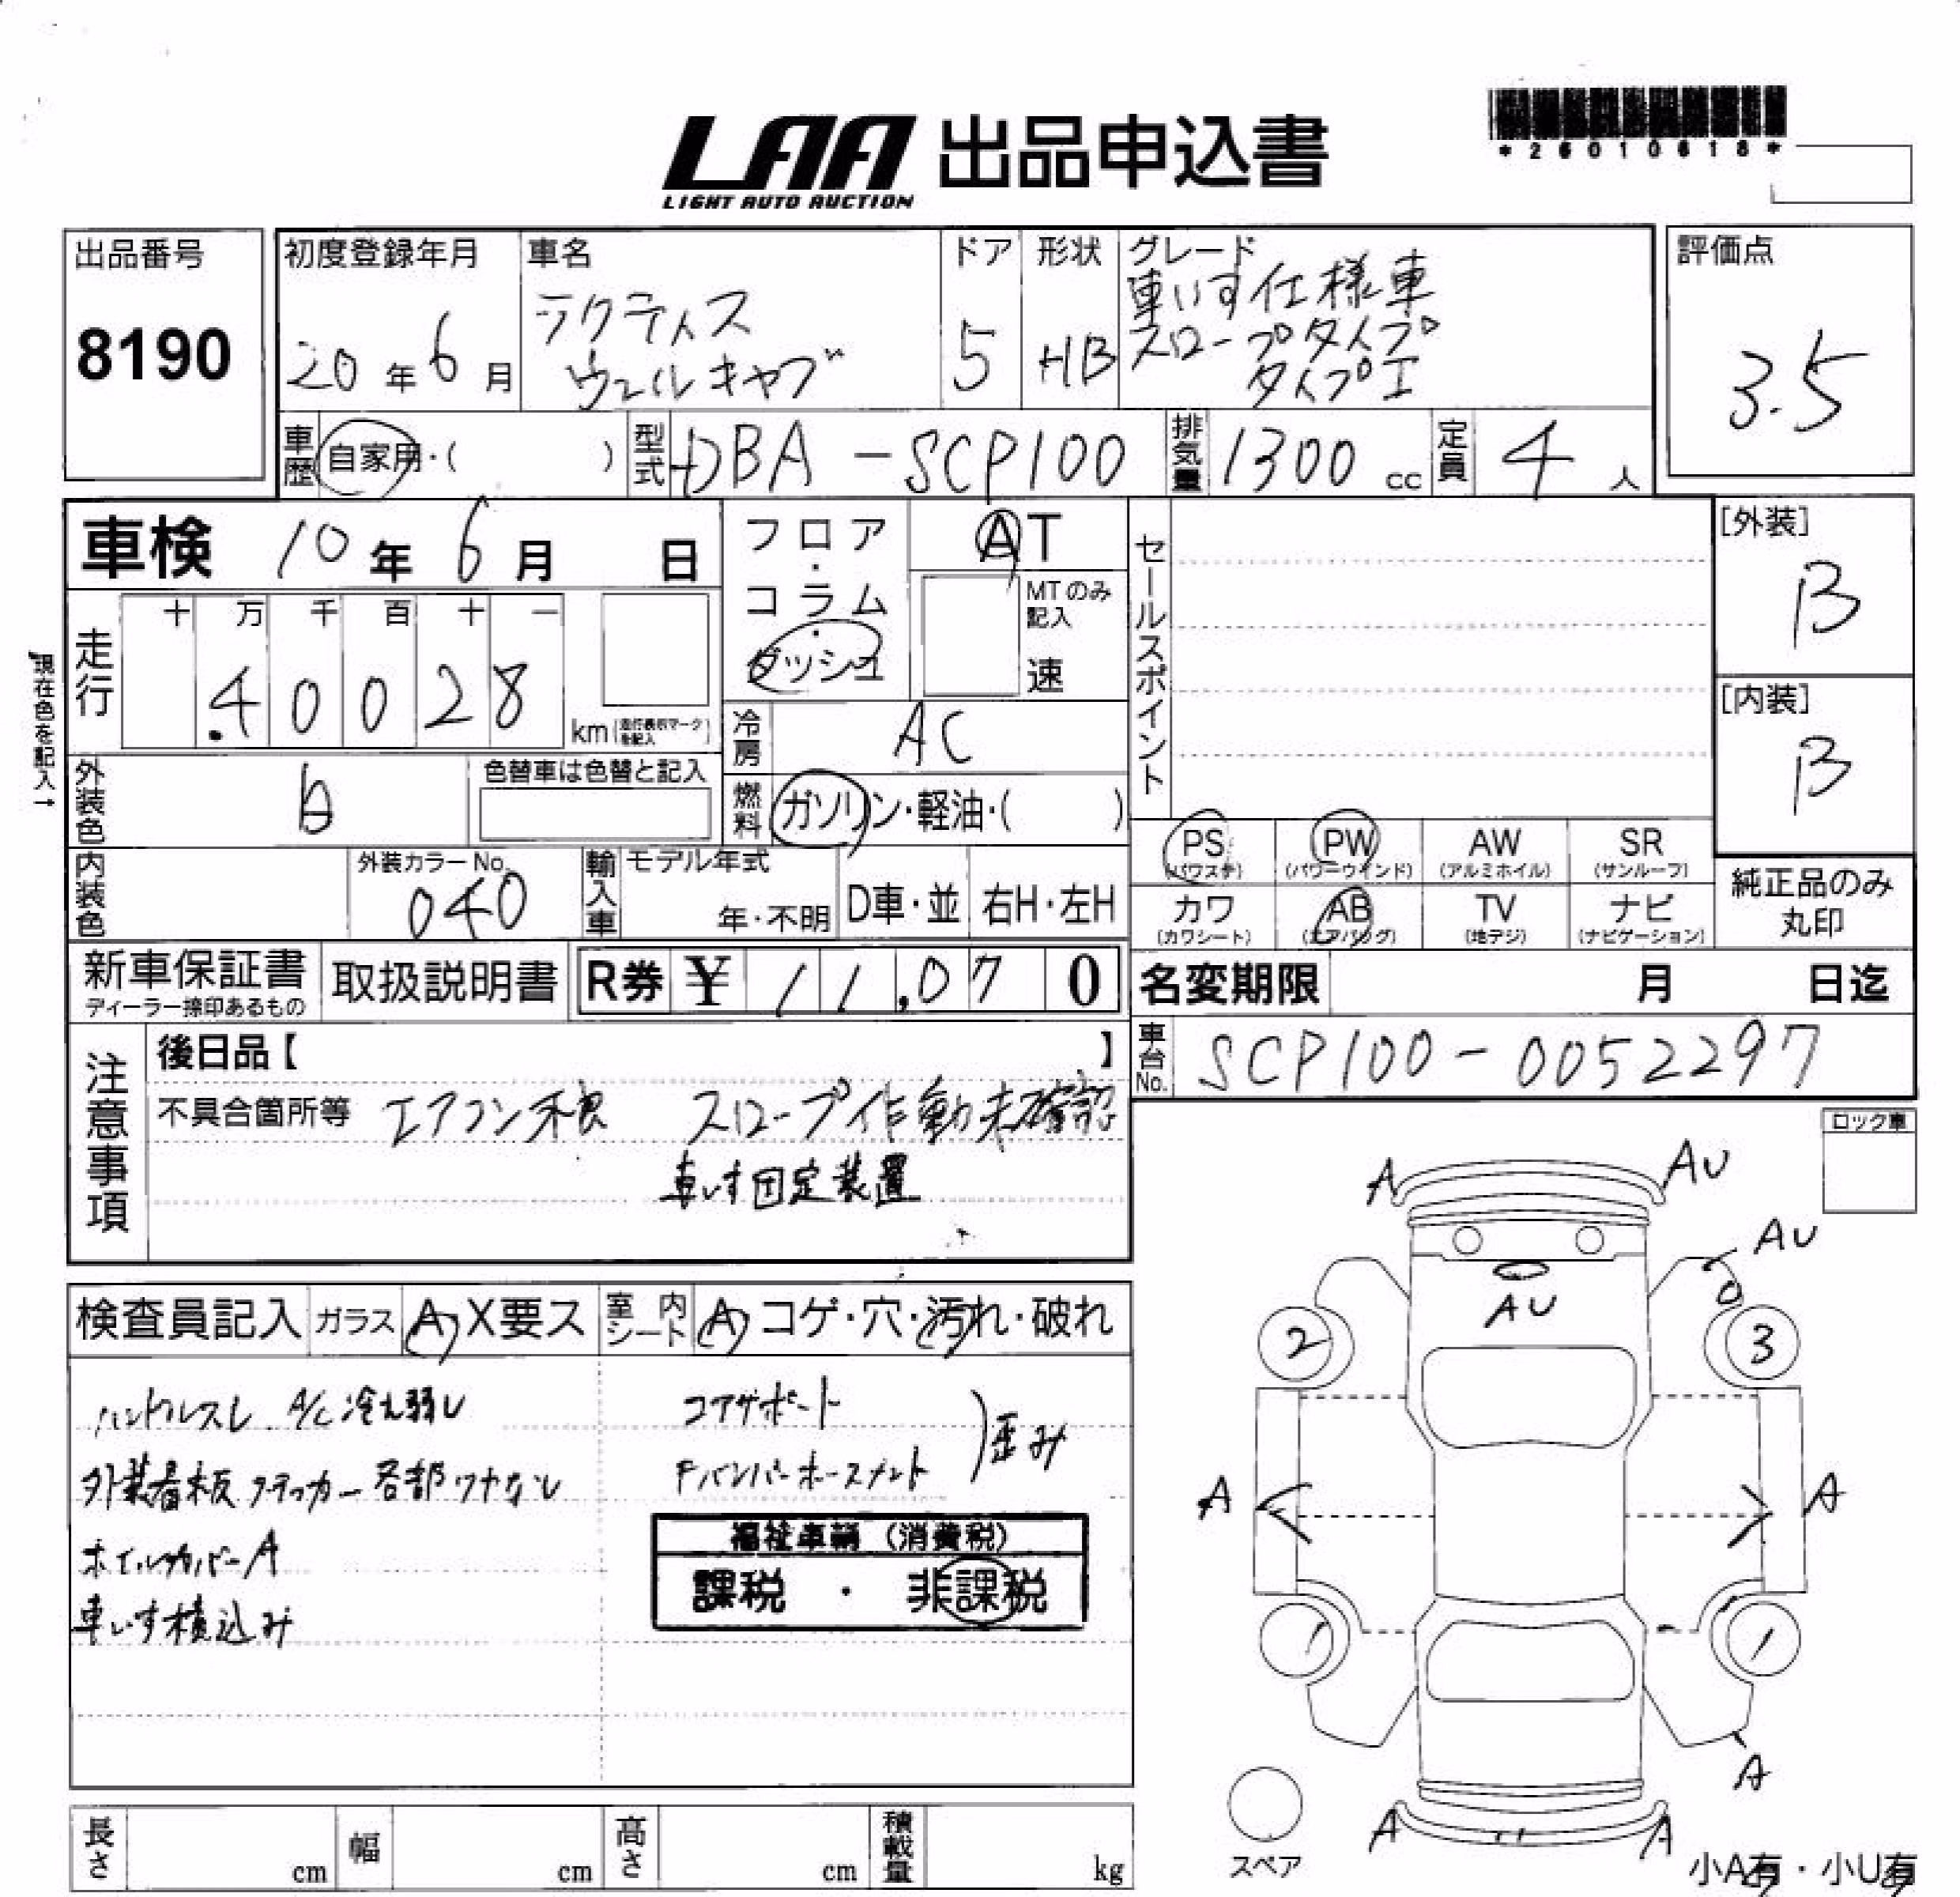 LAA 出品申込書
LIGHT AUTO AUCTION
*26010618*
出品番号
8190
初度登録年月
20年6月
車名
ラクティス
ウェルキャブ
ドア
5
形状
HB
グレード
車いす仕様車
スロープタイプ
タイプI
評価点
3.5
車歴
自家用・( )
型式
DBA-SCP100
排気量
1300 cc
定員
4 人
車検 10年 6月 日
フロア・コラム・ダッシュ
AT
MTのみ記入
速
セールスポイント
[外装]
B
[内装]
B
現在色を記入→
走行
十 万 千 百 十 一
40028
km (走行表示マークを記入)
冷房
AC
外装色
色替車は色替と記入
燃料
ガソリン・軽油・( )
内装色
外装カラーNo.
040
輸入車
モデル年式
年・不明
D車・並
右H・左H
PS (パワステ)
PW (パワーウインド)
AW (アルミホイル)
SR (サンルーフ)
カワ (カワシート)
AB (エアバッグ)
TV (地デジ)
ナビ (ナビゲーション)
純正品のみ
丸印
新車保証書
ディーラー捺印あるもの
取扱説明書
R券 ¥ 11,070
名変期限 月 日迄
車台No.
SCP100-0052297
注意事項
後日品【 】
不具合箇所等 エアコン検 スロープ作動未確認
車いす固定装置
ロック車
検査員記入
ガラス
A・X要ス
室内シート
A・コゲ・穴・汚れ・破れ
ハンドルスレ A/C冷え弱い
コアサポート
歪み
外装看板ステッカー各部ワケなし
ホイルカバーA
車いす積込み
福祉車輌(消費税)
課税・非課税
A
AU
AU
AU
2
3
A
A
A
A
A
スペア
小A有・小U有
長さ cm
幅 cm
高さ cm
積載量 kg